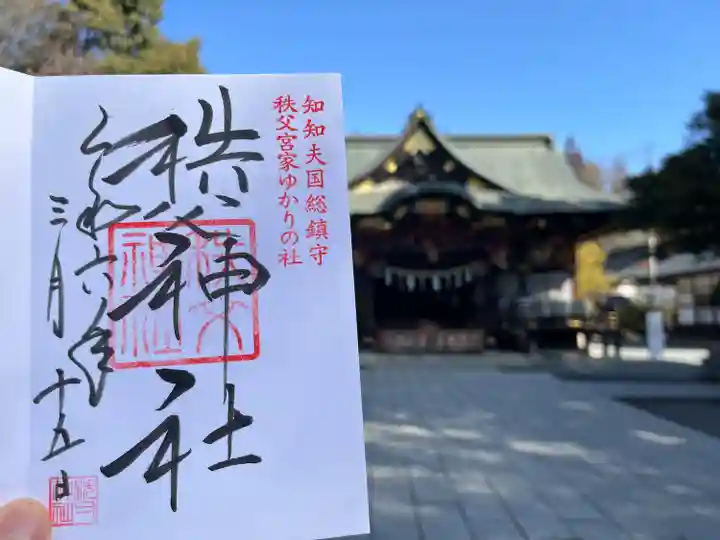 知知夫国総鎮守
秩父宮家ゆかりの社
秩父神社
令和六年
三月十五日
秩父
神社